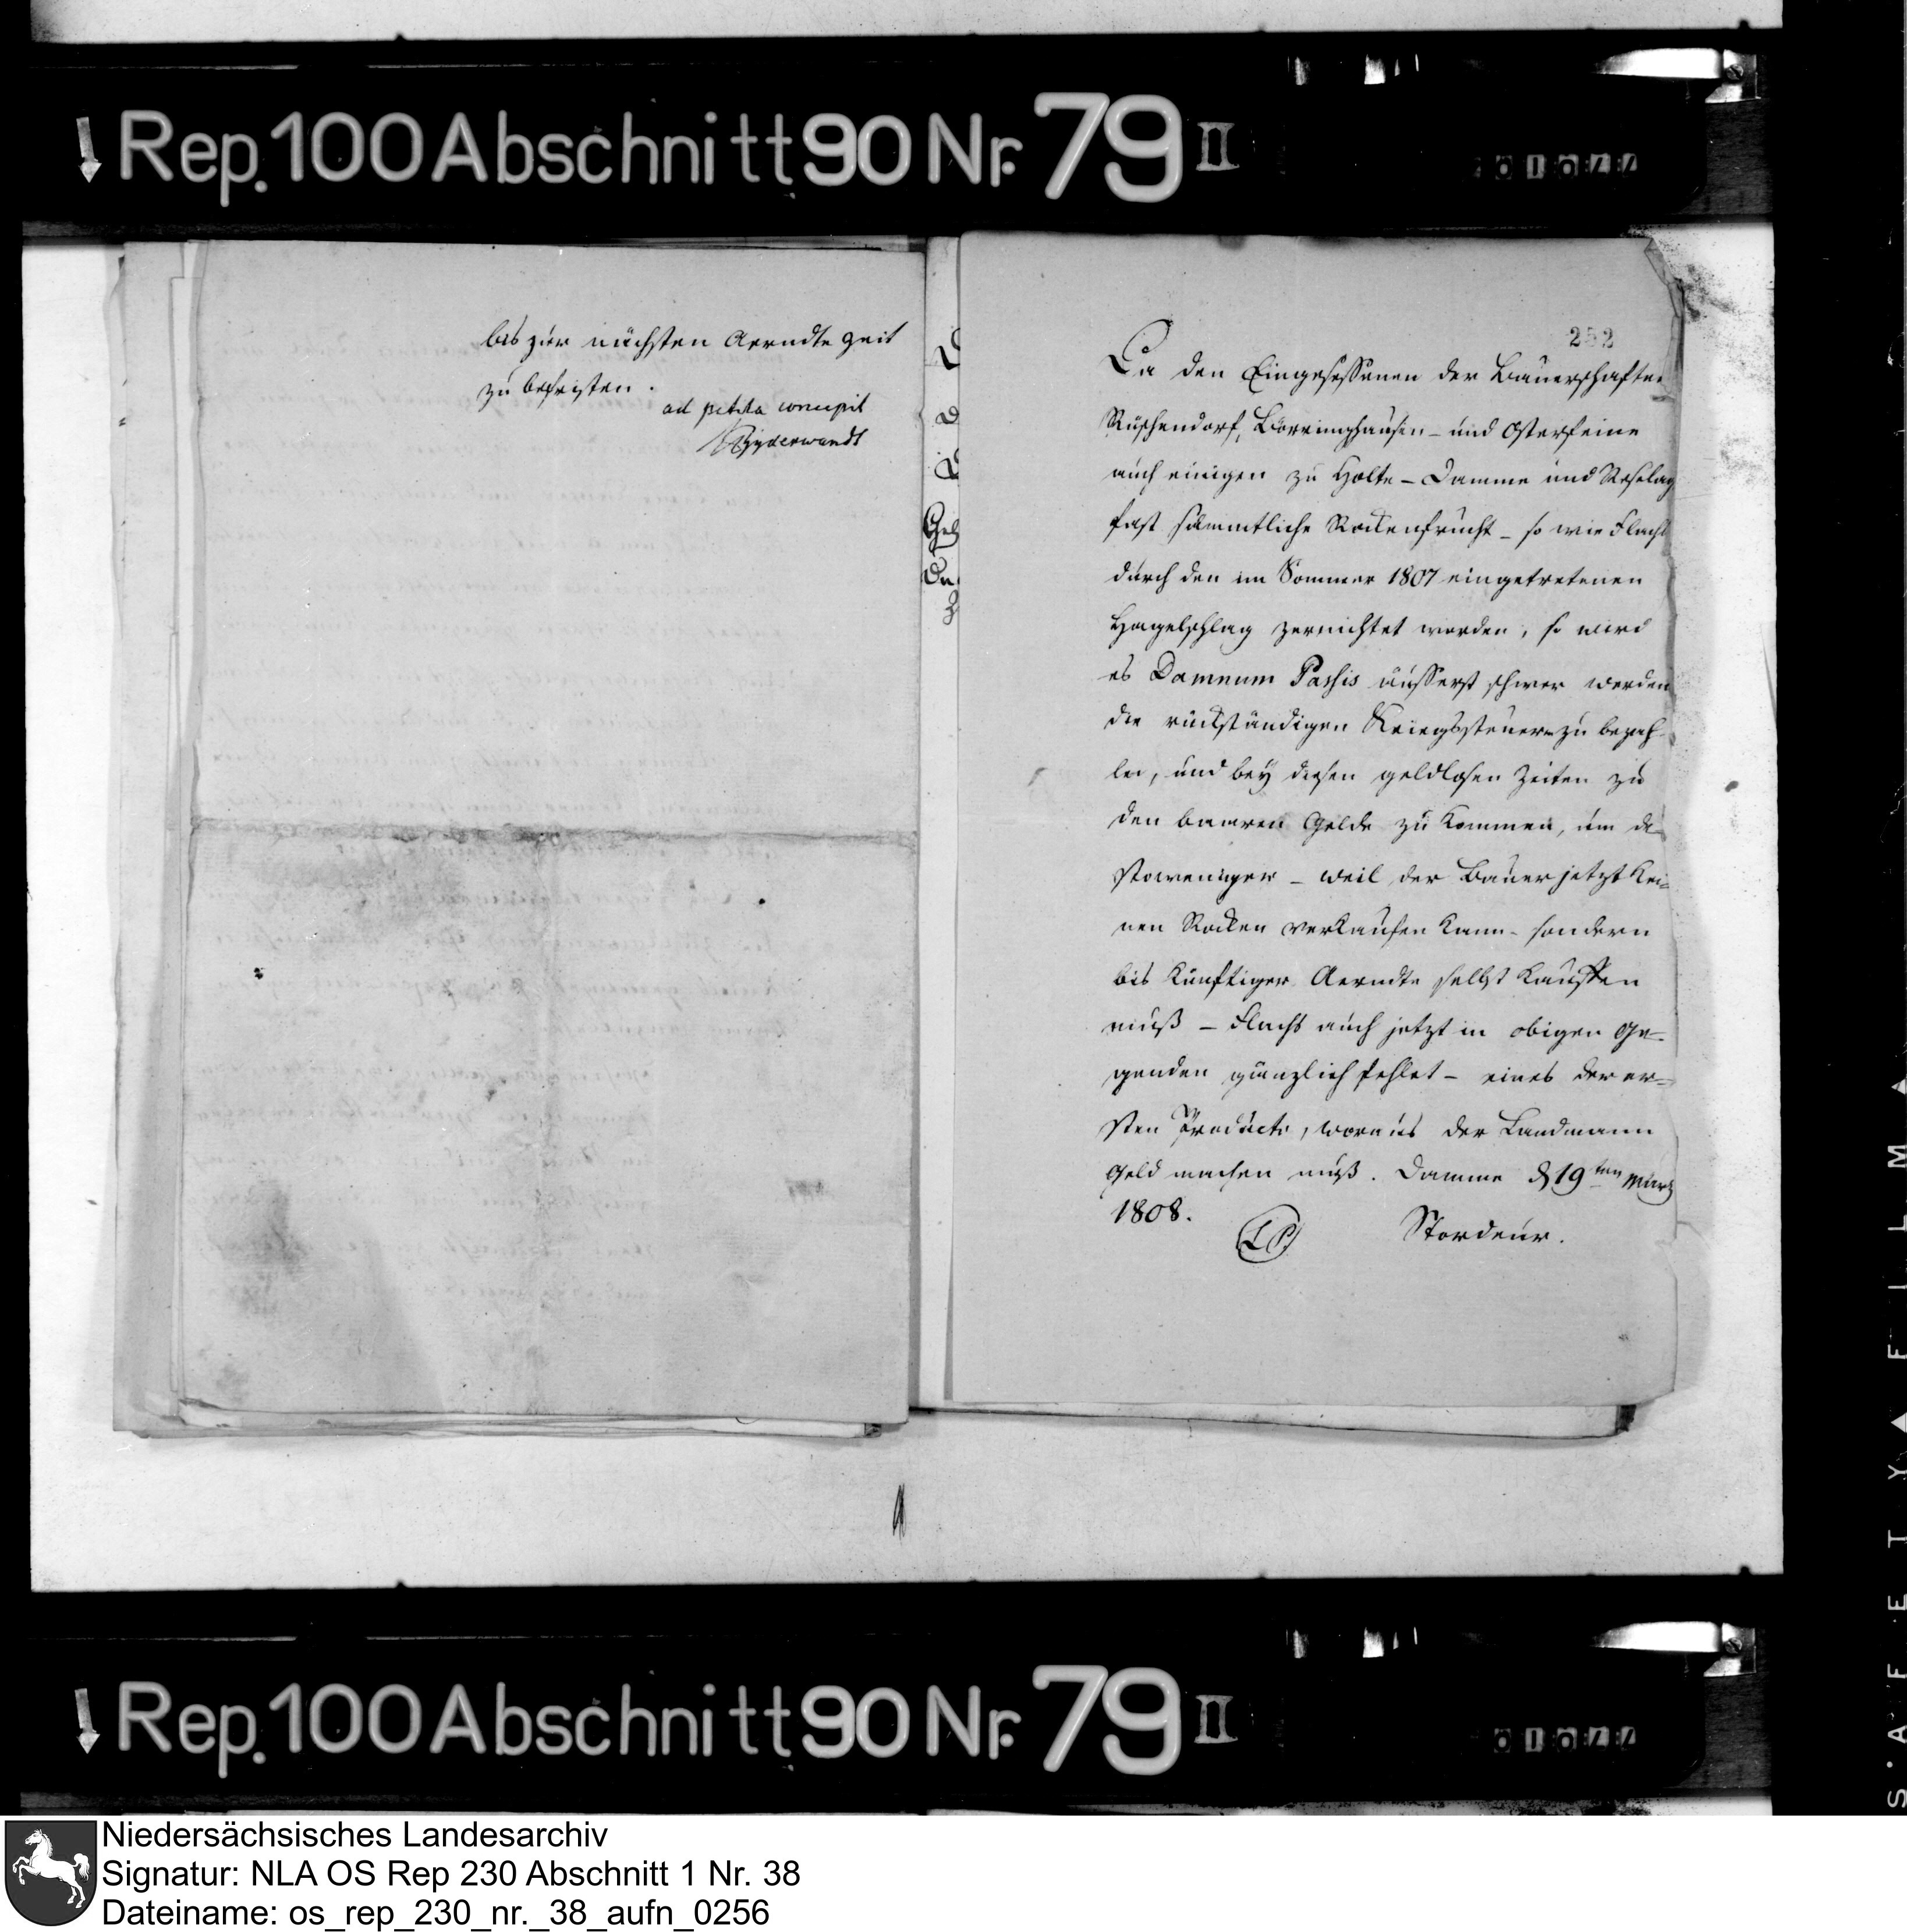 Rep. 100 Abschnitt 90 Nr. 79 II
bis zur nächsten Aerndte Zeit
zu befristen.
ad petita concepit
252
Da den Eingesessenen der Bauerschaften
Rüschendorf, Borringhausen – und Osterfeine
auch einigen zu Holte – Damme und Reselag
fast sämmtliche Rockenfrucht – so wie Flachs
durch den im Sommer 1807 eingetretenen
Hagelschlag zernichtet worden, so wird
es Damnum Passis äusserst schwer werden
die rückständigen Kriegssteuern zu bezah-
len, und bey diesen geldlosen Zeiten zu
den baaren Gelde zu kommen, um de-
stoweniger – weil der Bauer jetzt kei-
nen Rocken verkaufen kann – sondern
bis künftiger Aerndte selbst kauffen
muß – Flachs auch jetzt in obigen Ge-
genden gänzlich fehlet – eines der er-
sten Producte, woraus der Landmann
Geld machen muß. Damme d 19ten Märtz
1808.
Stordeur.
Gel
Rep. 100 Abschnitt 90 Nr. 79 II
SAFETY FILM
Niedersächsisches Landesarchiv
Signatur: NLA OS Rep 230 Abschnitt 1 Nr. 38
Dateiname: os_rep_230_nr._38_aufn_0256